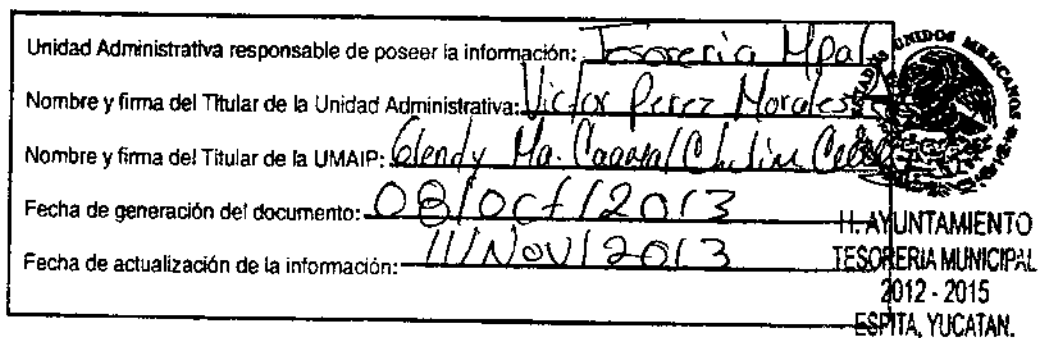 Unidad Administrativa responsable de poseer la información: Tesoreria Mpal
Nombre y firma del Titular de la Unidad Administrativa: Victor Perez Morales
Nombre y firma del Titular de la UMAIP: Glendy Ma.
Fecha de generación del documento: 08/Oct/2013
Fecha de actualización de la información: 11/Nov/2013
ESTADOS UNIDOS MEXICANOS
H. AYUNTAMIENTO
TESORERIA MUNICIPAL
2012 - 2015
ESPITA, YUCATAN.